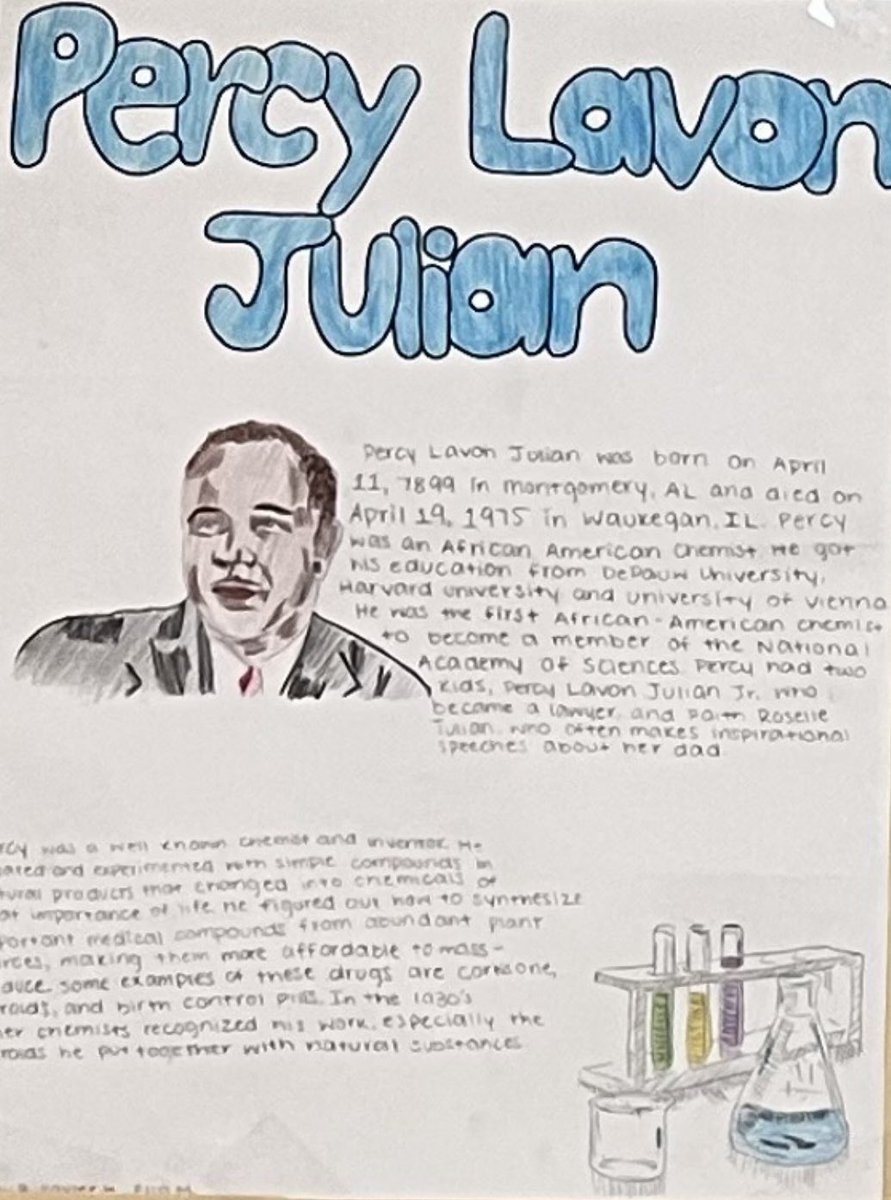 Percy Lavon
Julian
Percy Lavon Julian was born on April
11, 1899 in Montgomery, AL and died on
April 19, 1975 in Waukegan, IL. Percy
was an African American chemist. He got
his education from DePauw University,
Harvard University and University of Vienna
He was the first African-American chemist
to become a member of the National
Academy of Sciences. Percy had two
kids, Percy Lavon Julian Jr. who
became a lawyer, and Faith Roselle
Julian, who often makes inspirational
speeches about her dad.
rcy was a well known chemist and inventor. He
ated and experimented with simple compounds in
tural products that changed into chemicals of
at importance of life. He figured out how to synthesize
portant medical compounds from abundant plant
rces, making them more affordable to mass-
duce. Some examples of these drugs are cortisone,
roids, and birth control pills. In the 1930's
er chemists recognized his work, especially the
roids he put together with natural substances